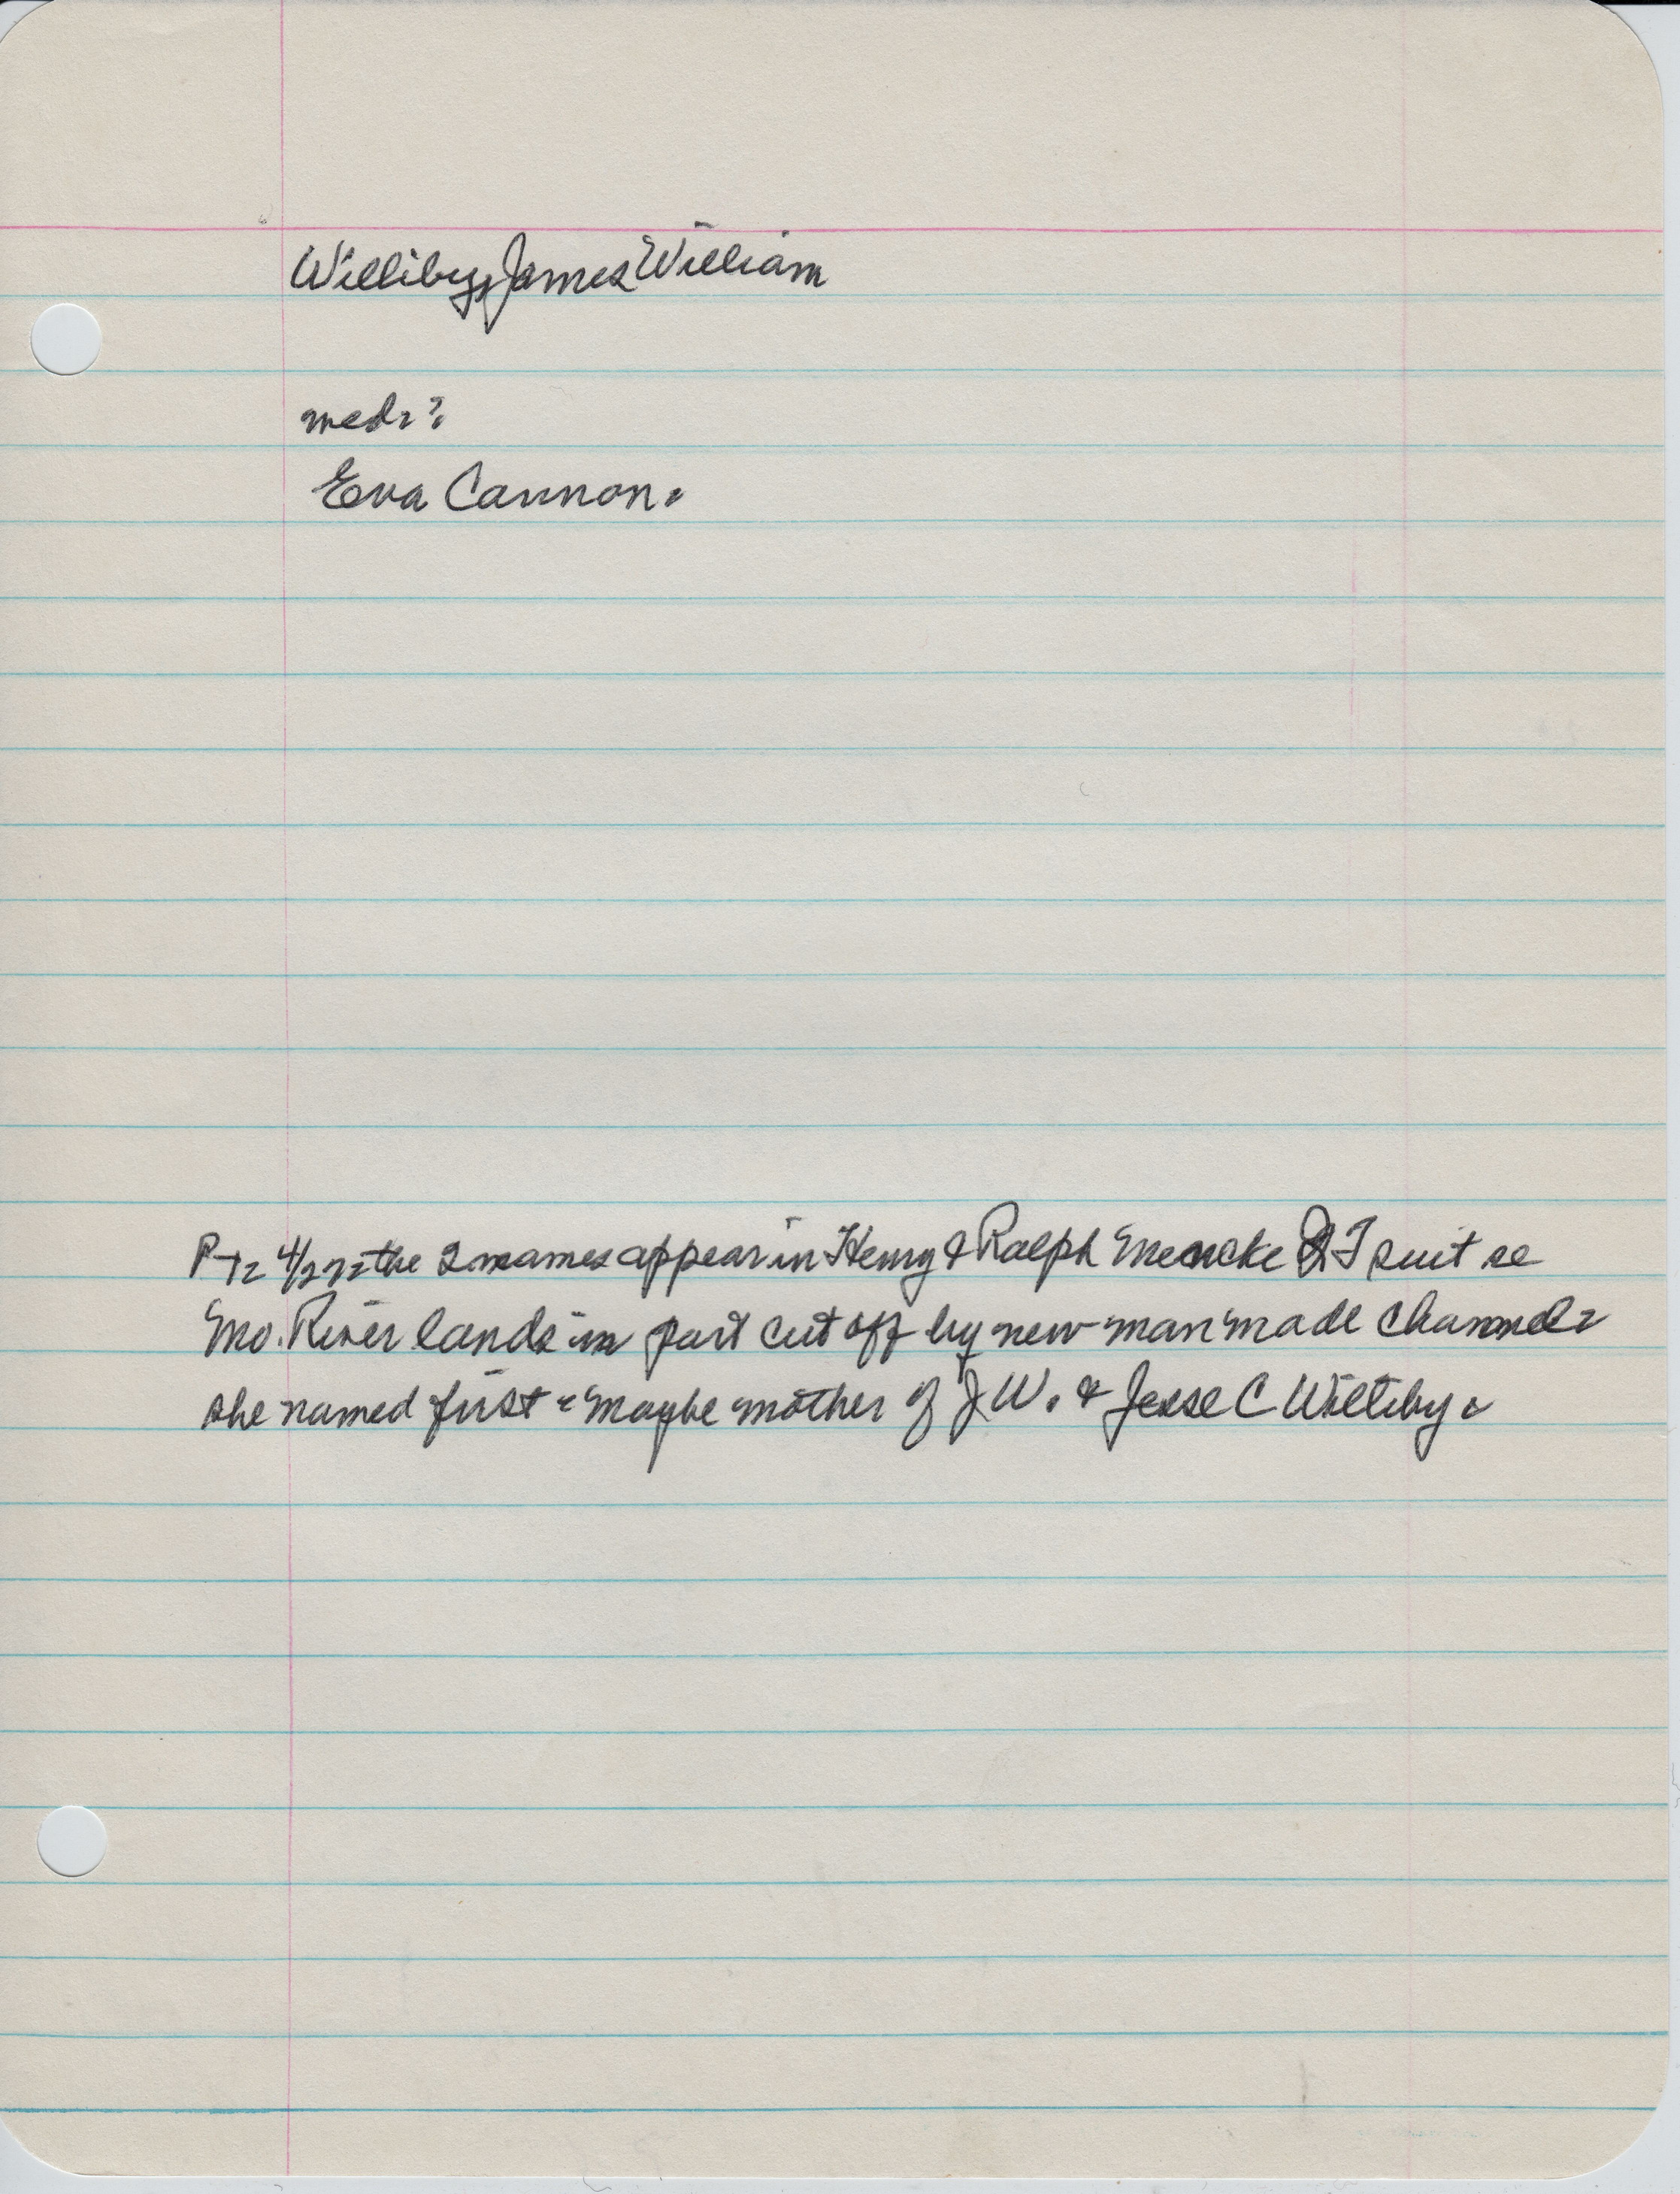 Williby, James William
med-?
Eva Cannon.
P-T- the 2 names appear in Henry & Ralph Mencke QT suit re
Mo. River lands in part cut off by new man made channel-
she named first - maybe mother of J W. & Jesse C Williby.